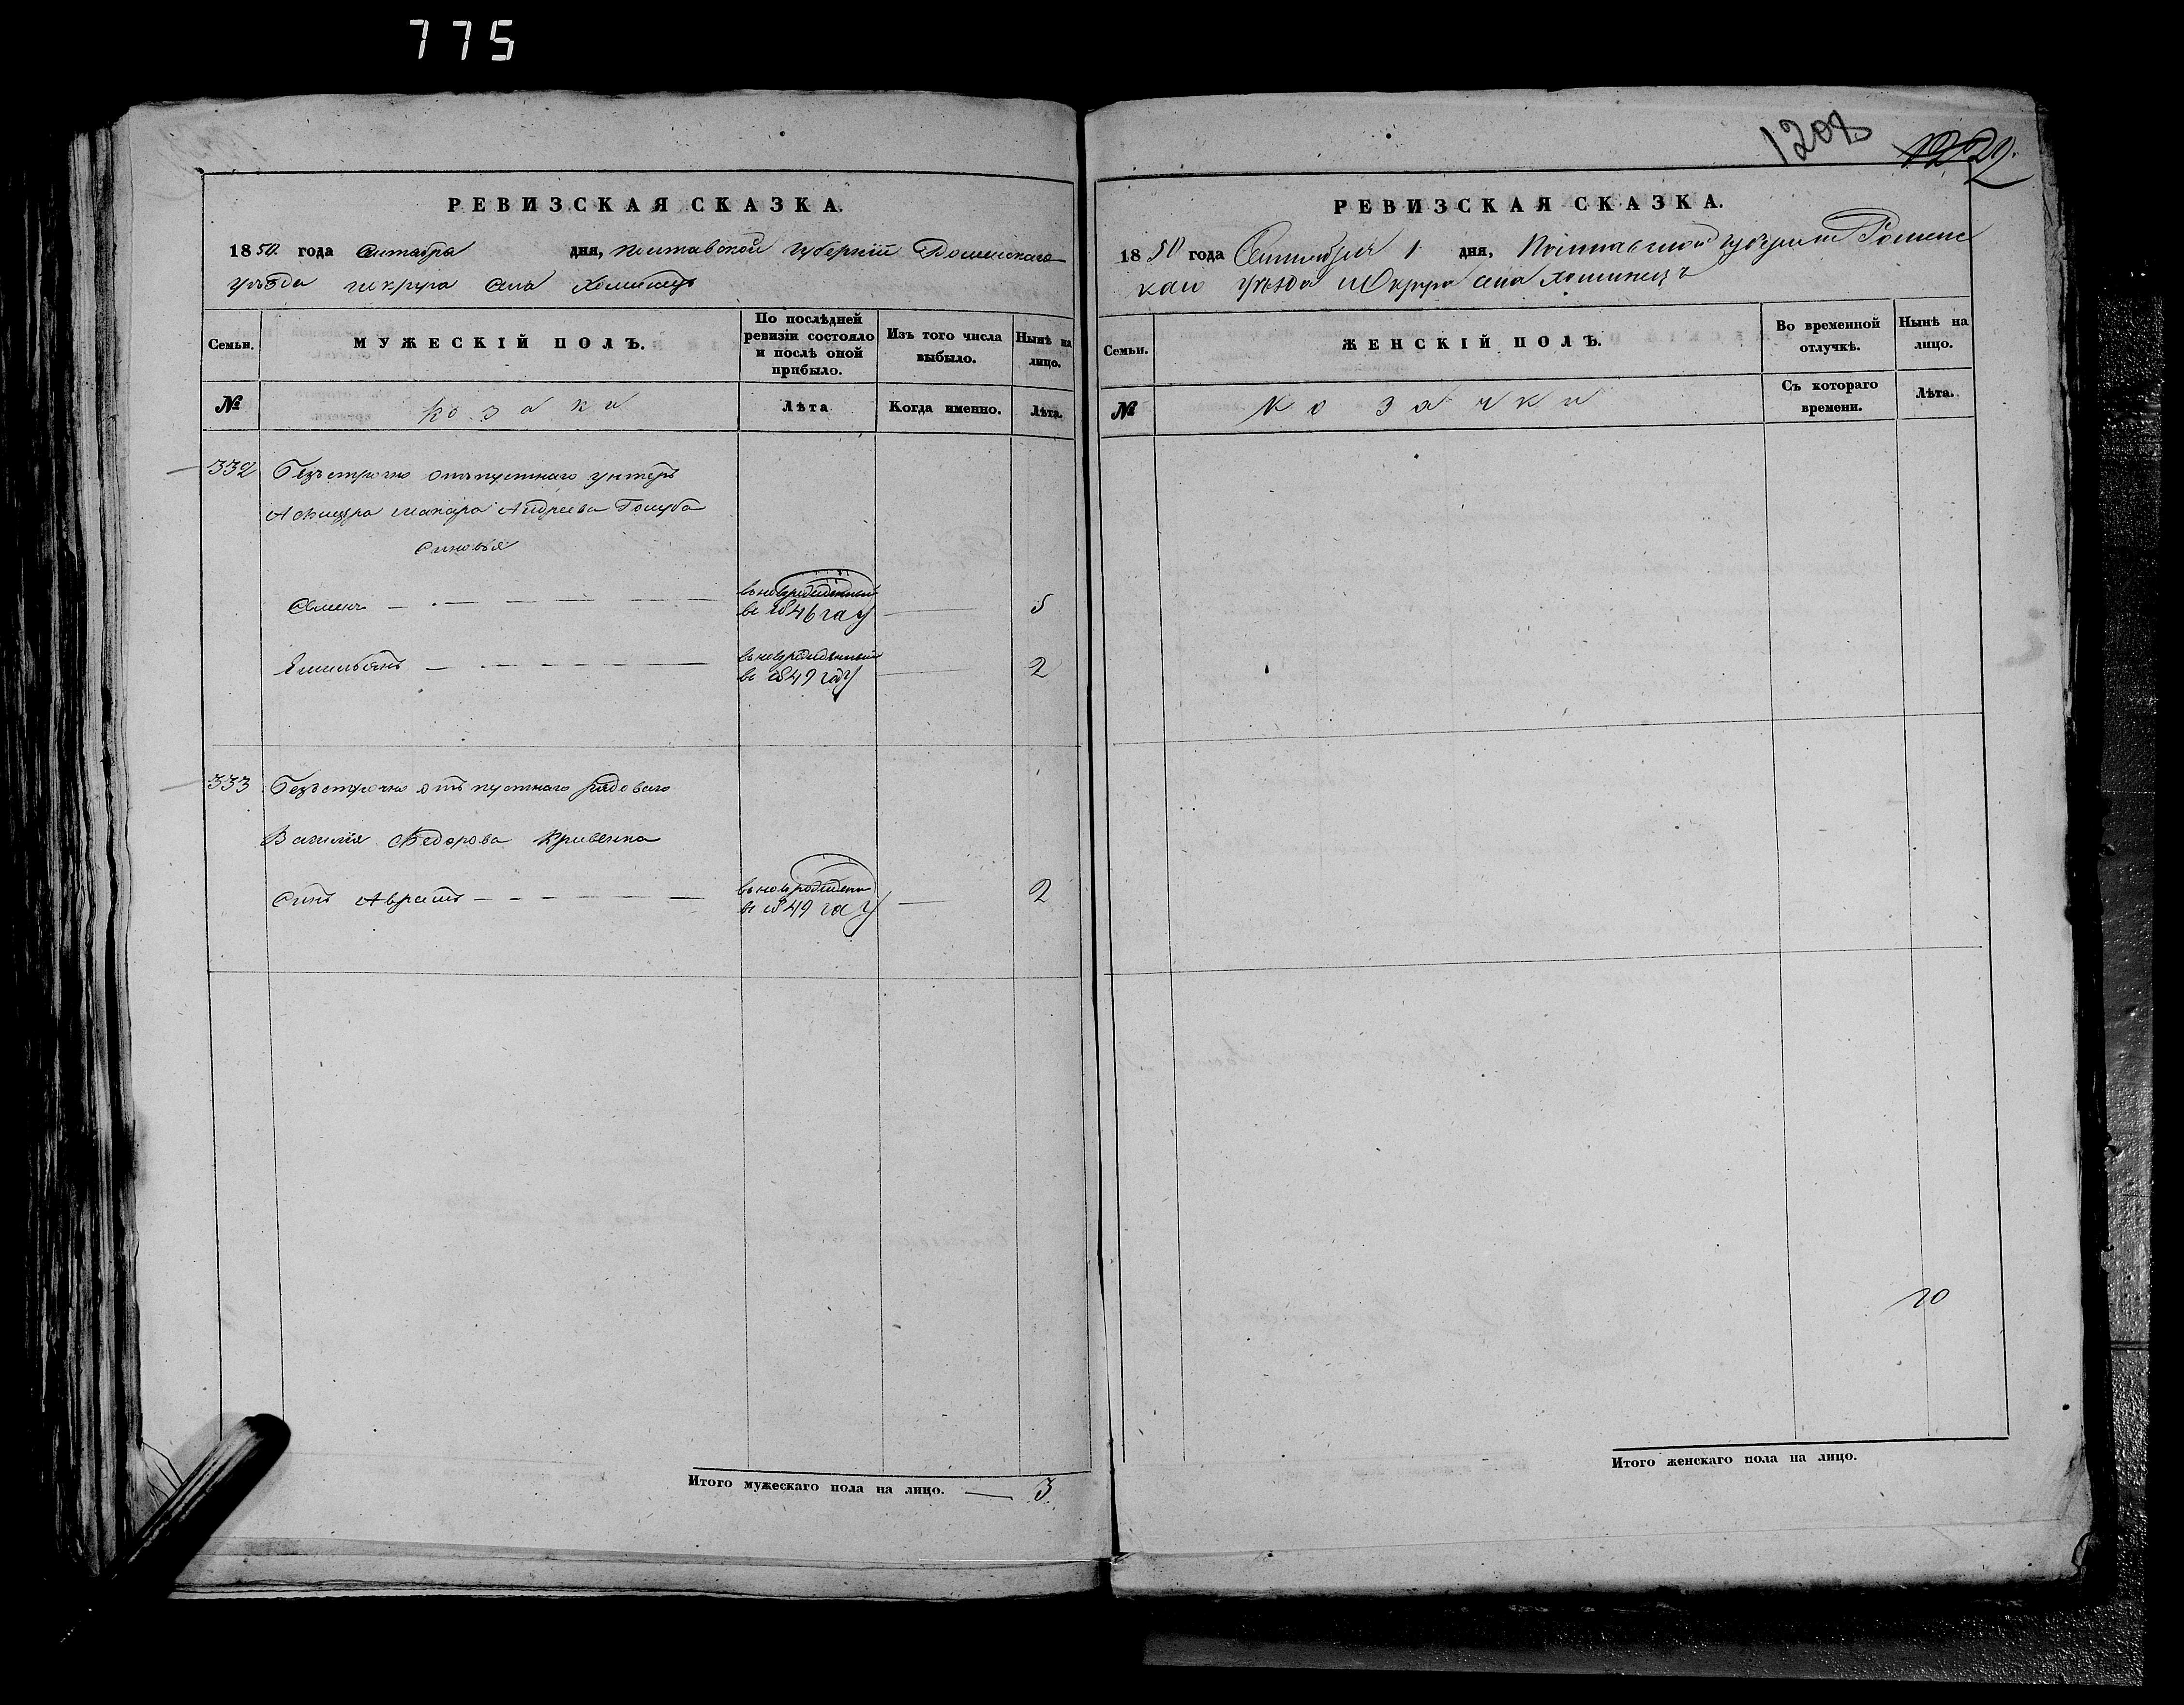 775
РЕВИЗСКАЯ СКАЗКА.
1850. года Сентября дня, Полтавской Губернии Роменскаго
уезда и округа Села Хоминецъ
Семьи.
МУЖЕСКІЙ ПОЛЪ.
По послѣдней ревизіи состояло и послѣ оной прибыло.
Изъ того числа выбыло.
Нынѣ на лицо.
№
козаки
Лѣта
Когда именно.
Лѣта.
332 Безсрочно отпустнаго унтеръ
Макара Андреева Голуба
Синовья
Семенъ
вновьрожденный
в 1846 году
5
Емильянъ
вновьрожденный
в 1849 году
2
333 Безсрочно отпустнаго рядоваго
Василія Федорова Кривенка
Синъ Аврамъ
вновьрожденн
в 1849 году
2
Итого мужескаго пола на лицо. 3
1208
1229.
РЕВИЗСКАЯ СКАЗКА.
1850 года Сентября 1 дня, Полтавской губерніи Роменс
каго уезда и Округа села Хоминецъ
Семьи.
ЖЕНСКІЙ ПОЛЪ.
Во временной отлучкѣ.
Нынѣ на лицо.
№
козачки
Съ котораго времени.
Лѣта.
Итого женскаго пола на лицо.